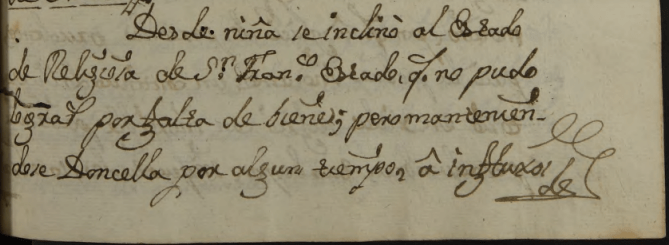 Desde niña se inclinò al Estado
de Religiosa de Sn. Franco. Estado, q. no pudo
lograr por falta de bienes; pero mantenien-
dose Doncella por algun tiempo, â influxos
de